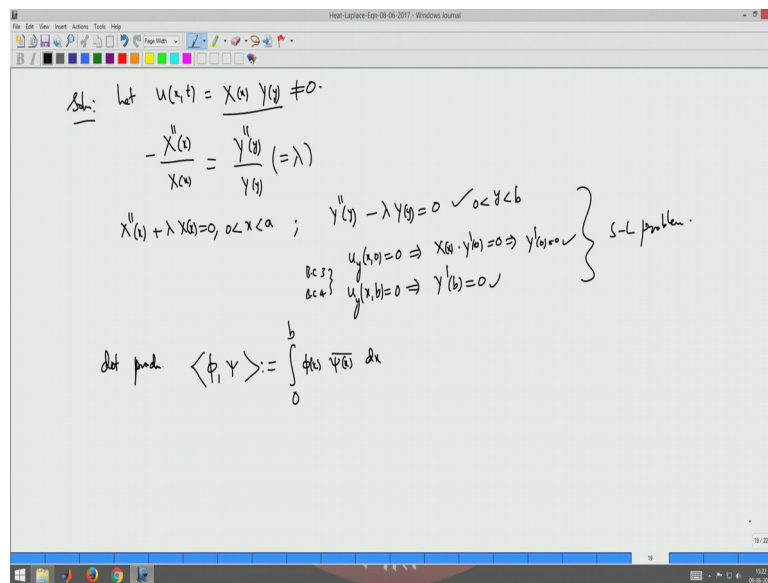 Heat-Laplace-Eqn-08-06-2017 - Windows Journal
File Edit View Insert Actions Tools Help
Page Width
B I
Soln: Let u(x,t) = X(x) Y(y) ≠ 0.
- X''(x)/X(x) = Y''(y)/Y(y) (= λ)
X''(x) + λ X(x) = 0, 0 < x < a ; Y''(y) - λ Y(y) = 0 ✓ 0 < y < b
B.C 3 } u_y(x,0) = 0 ⇒ X(x) · Y'(0) = 0 ⇒ Y'(0) = 0 ✓ } S-L problem.
B.C 4 } u_y(x,b) = 0 ⇒ Y'(b) = 0 ✓
dot prod. <ϕ, ψ> := ∫_0^b ϕ(x) \overline{ψ(x)} dx
19 / 22
19
15:22
09-06-20